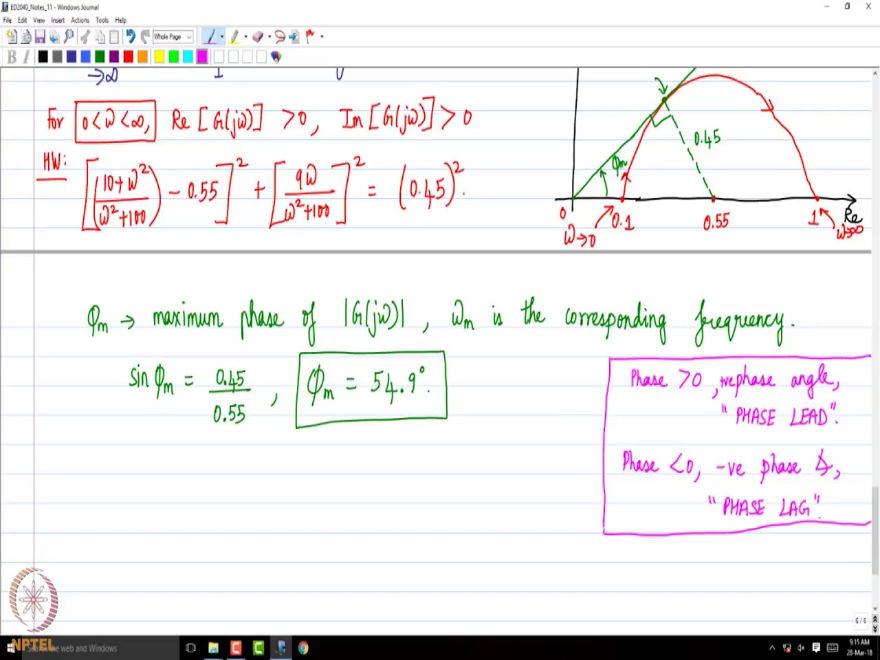 ED2040_Notes_11 - Windows Journal
File Edit View Insert Actions Tools Help
Whole Page
B I
→∞ 1 0
For 0<ω<∞, Re [G(jω)] >0, Im [G(jω)] >0
HW:
[(10+ω²/ω²+100) - 0.55]² + [9ω/ω²+100]² = (0.45)².
0.45
φm
0 0.1 0.55 1 Re
ω→0 ω→∞
φm → maximum phase of |G(jω)|, ωm is the corresponding frequency.
sin φm = 0.45/0.55, φm = 54.9°.
Phase >0, +ve phase angle,
"PHASE LEAD".
Phase <0, -ve phase ∡,
"PHASE LAG".
6 / 6
NPTEL
the web and Windows
9:15 AM
28-Mar-18